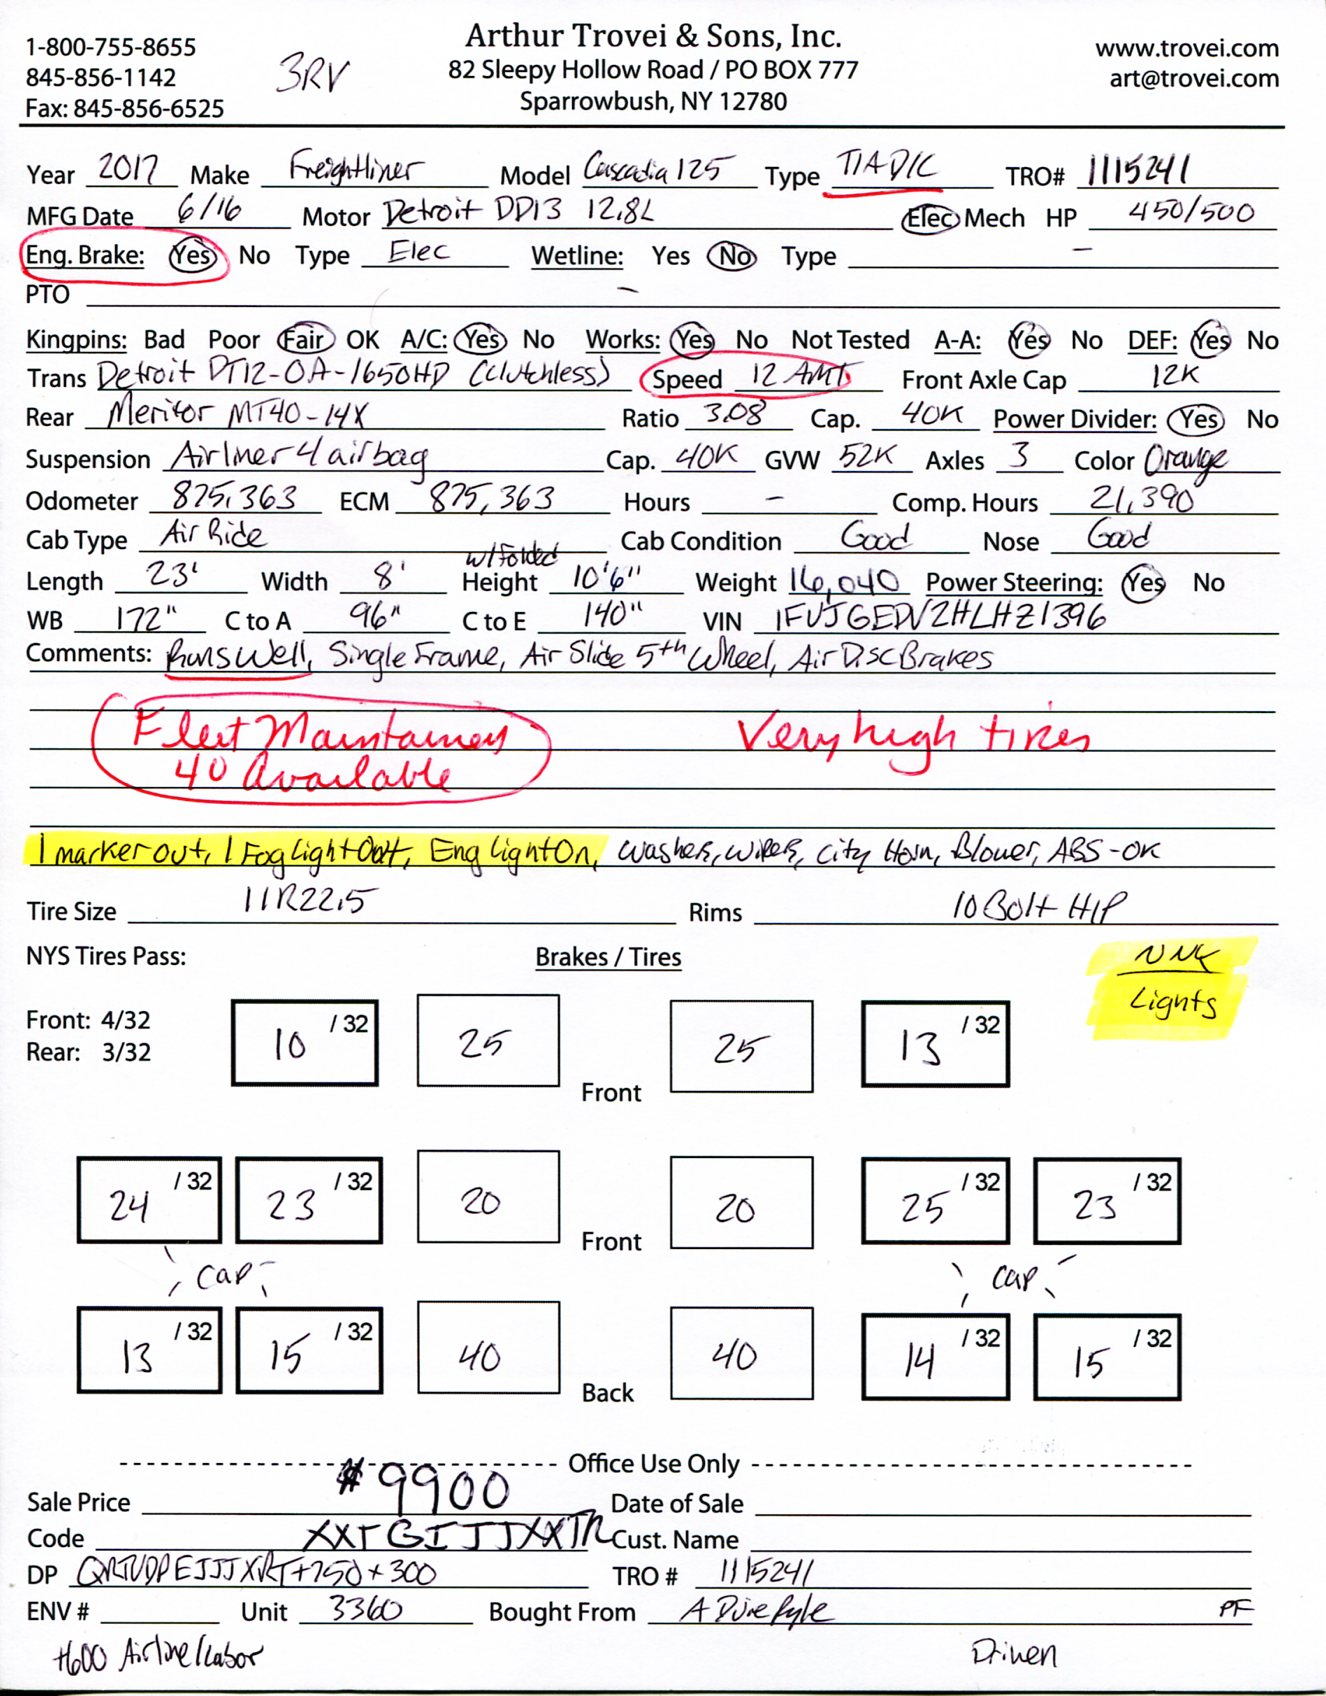 1-800-755-8655
845-856-1142
Fax: 845-856-6525
3RV
Arthur Trovei & Sons, Inc.
82 Sleepy Hollow Road / PO BOX 777
Sparrowbush, NY 12780
www.trovei.com
art@trovei.com
Year 2017 Make Freightliner Model Cascadia 125 Type T/A D/C TRO# 1115241
MFG Date 6/16 Motor Detroit DD13 12.8L Elec Mech HP 450/500
Eng. Brake: Yes No Type Elec Wetline: Yes No Type -
PTO -
Kingpins: Bad Poor Fair OK A/C: Yes No Works: Yes No Not Tested A-A: Yes No DEF: Yes No
Trans Detroit DT12-OA-1650HD (Clutchless) Speed 12 AMT Front Axle Cap 12K
Rear Meritor MT40-14X Ratio 3.08 Cap. 40K Power Divider: Yes No
Suspension Airliner 4 airbag Cap. 40K GVW 52K Axles 3 Color Orange
Odometer 875,363 ECM 875,363 Hours - Comp. Hours 21,390
Cab Type Air Ride Cab Condition Good Nose Good
Length 23' Width 8' w/Folded Height 10'6" Weight 16,040 Power Steering: Yes No
WB 172" C to A 96" C to E 140" VIN 1FUJGEDV2HLHZ1396
Comments: Runs Well, Single Frame, Air Slide 5th Wheel, Air Disc Brakes
Fleet Maintained
40 Available
Very high tires
1 marker out, 1 Fog Light Out, Eng Light On, Washer, Wiper, City Horn, Blower, ABS-OK
Tire Size 11R22.5 Rims 10 Bolt H/P
NYS Tires Pass: Brakes / Tires
NNK
Lights
Front: 4/32
Rear: 3/32
10 /32 25 Front 25 13 /32
24 /32 23 /32 20 Front 20 25 /32 23 /32
Cap Cap
13 /32 15 /32 40 Back 40 14 /32 15 /32
Office Use Only
Sale Price $9900 Date of Sale
Code XXTGIJJXXTR Cust. Name
DP +750+300 TRO # 1115241
ENV # Unit 3360 Bought From A Duie Pyle PF
+600 Airline/Labor Driven